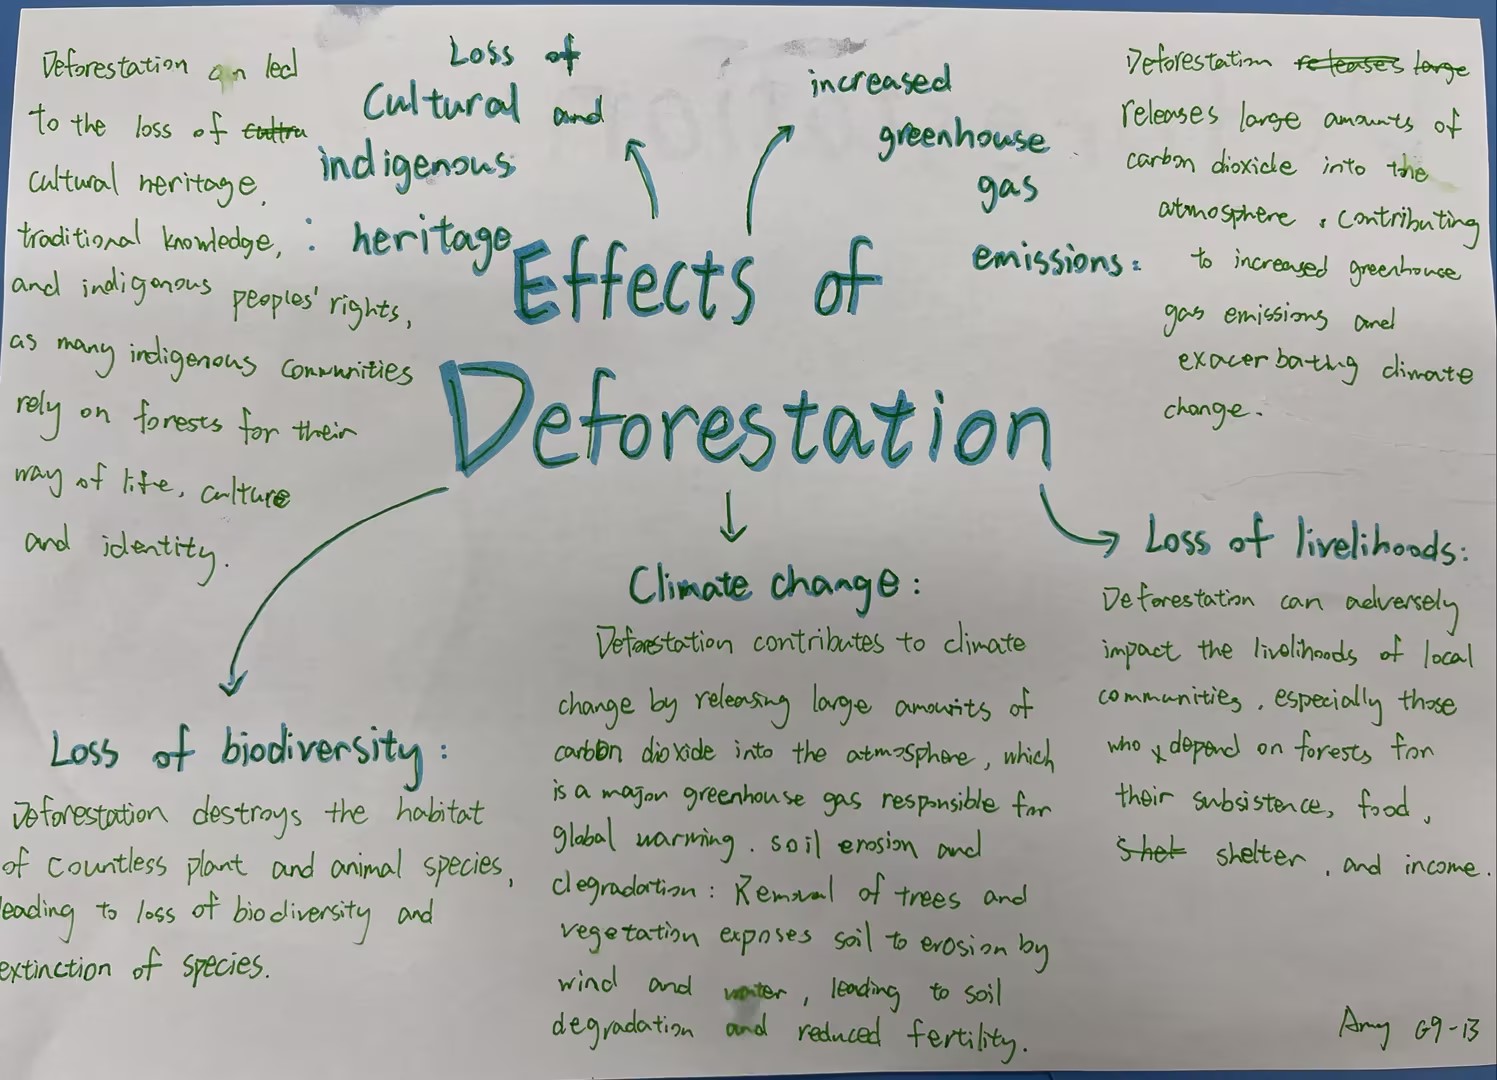 Effects of
Deforestation
Loss of
Cultural and
indigenous
: heritage
Deforestation can led
to the loss of cultru
cultural heritage,
traditional knowledge,
and indigenous peoples' rights,
as many indigenous communities
rely on forests for their
way of life, culture
and identity.
increased
greenhouse
gas
emissions:
Deforestation releases large
releases large amounts of
carbon dioxide into the
atmosphere, contributing
to increased greenhouse
gas emissions and
exacerbating climate
change.
Loss of biodiversity:
Deforestation destroys the habitat
of countless plant and animal species,
leading to loss of biodiversity and
extinction of species.
Climate change:
Deforestation contributes to climate
change by releasing large amounts of
carbon dioxide into the atmosphere, which
is a major greenhouse gas responsible for
global warming. soil erosion and
degradation: Removal of trees and
vegetation exposes soil to erosion by
wind and water, leading to soil
degradation and reduced fertility.
Loss of livelihoods:
Deforestation can adversely
impact the livelihoods of local
communities, especially those
who depend on forests for
their subsistence, food,
shel shelter, and income.
Amy G9-13